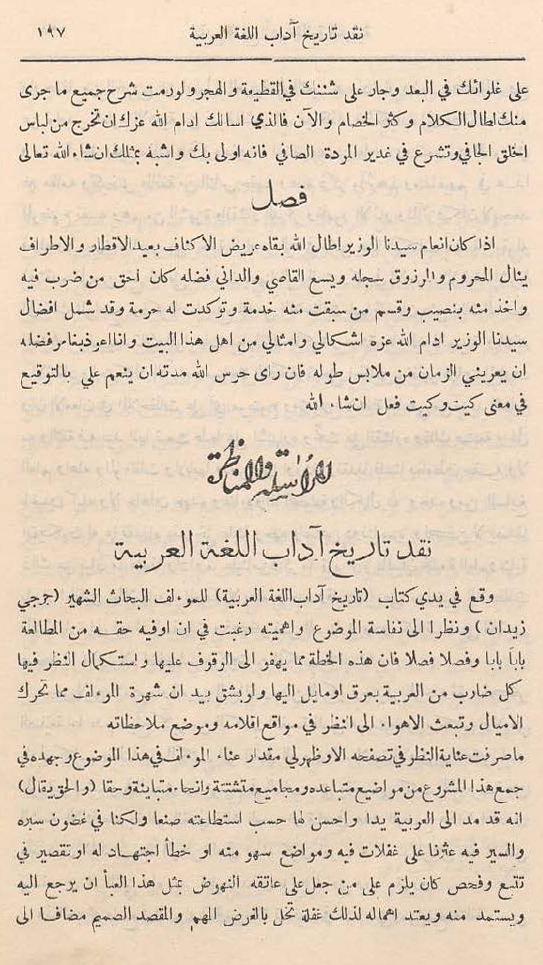 نقد تاريخ آداب اللغة العربية ١٩٧
على غلوائك في البعد وجار على شننك في القطيعة والهجر ولو رمت شرح جميع ما جرى
منك اطال الكلام وكثر الخصام والآن فالذي اسالك ادام الله عزك ان تخرج من لباس
اخلق الجافي وتشرع في غدير المودة الصافي فانه اولى بك واشبه بمثلك ان شاء الله تعالى
فصل
اذا كان انعام سيدنا الوزير اطال الله بقاءه عريض الاكناف بعيد الاقطار والاطراف
ينال المحروم والمرزوق سجله ويسع القاصي والداني فضله كان احق من ضرب فيه
واخذ منه بنصيب وقسم من سبقت منه خدمة وتوكدت له حرمة وقد شمل افضال
سيدنا الوزير ادام الله عزه اشكالي وامثالي من اهل هذا البيت وانا اعوذ بغامر فضله
ان يعريني الزمان من ملابس طوله فان راى حرس الله مدته ان ينعم علي بالتوقيع
في معنى كيت وكيت فعل ان شاء الله
المراسلة والمناظرة
نقد تاريخ آداب اللغة العربية
وقع في يدي كتاب (تاريخ آداب اللغة العربية) للموءلف البحاث الشهير (جرجي
زيدان) ونظرا الى نفاسة الموضوع واهميته رغبت في ان اوفيه حقه من المطالعة
باباً بابا وفصلا فصلا فان هذه الخطة مما يهفو الى الوقوف عليها واستكمال النظر فيها
كل ضارب من العربية بعرق او مايل اليها ولو بشق بيد ان شهرة الموءلف مما تحرك
الاميال وتبعث الاهواء الى النظر في مواقع اقلامه وموضع ملاحظاته
ما صرفت عناية النظر في تصفحه الا وظهر لي مقدار عناء الموءلف في هذا الموضوع وجهده في
جمع هذا المشروع من مواضيع متباعده ومجاميع متشتتة وانحاء متباينة وحقا (والحق يقال)
انه قد مد الى العربية يدا واحسن لها حسب استطاعته صنعا ولكنا في غضون سبره
والسير فيه عثرنا على غفلات فيه ومواضع سهو منه او خطأ اجتهاد له او تقصير في
تتبع وفحص كان يلزم على من جعل على عاتقه النهوض بمثل هذا العبأ ان يرجع اليه
ويستمد منه ويعتد اهماله لذلك غفلة تخل بالغرض المهم والمقصد الصميم مضافا الى